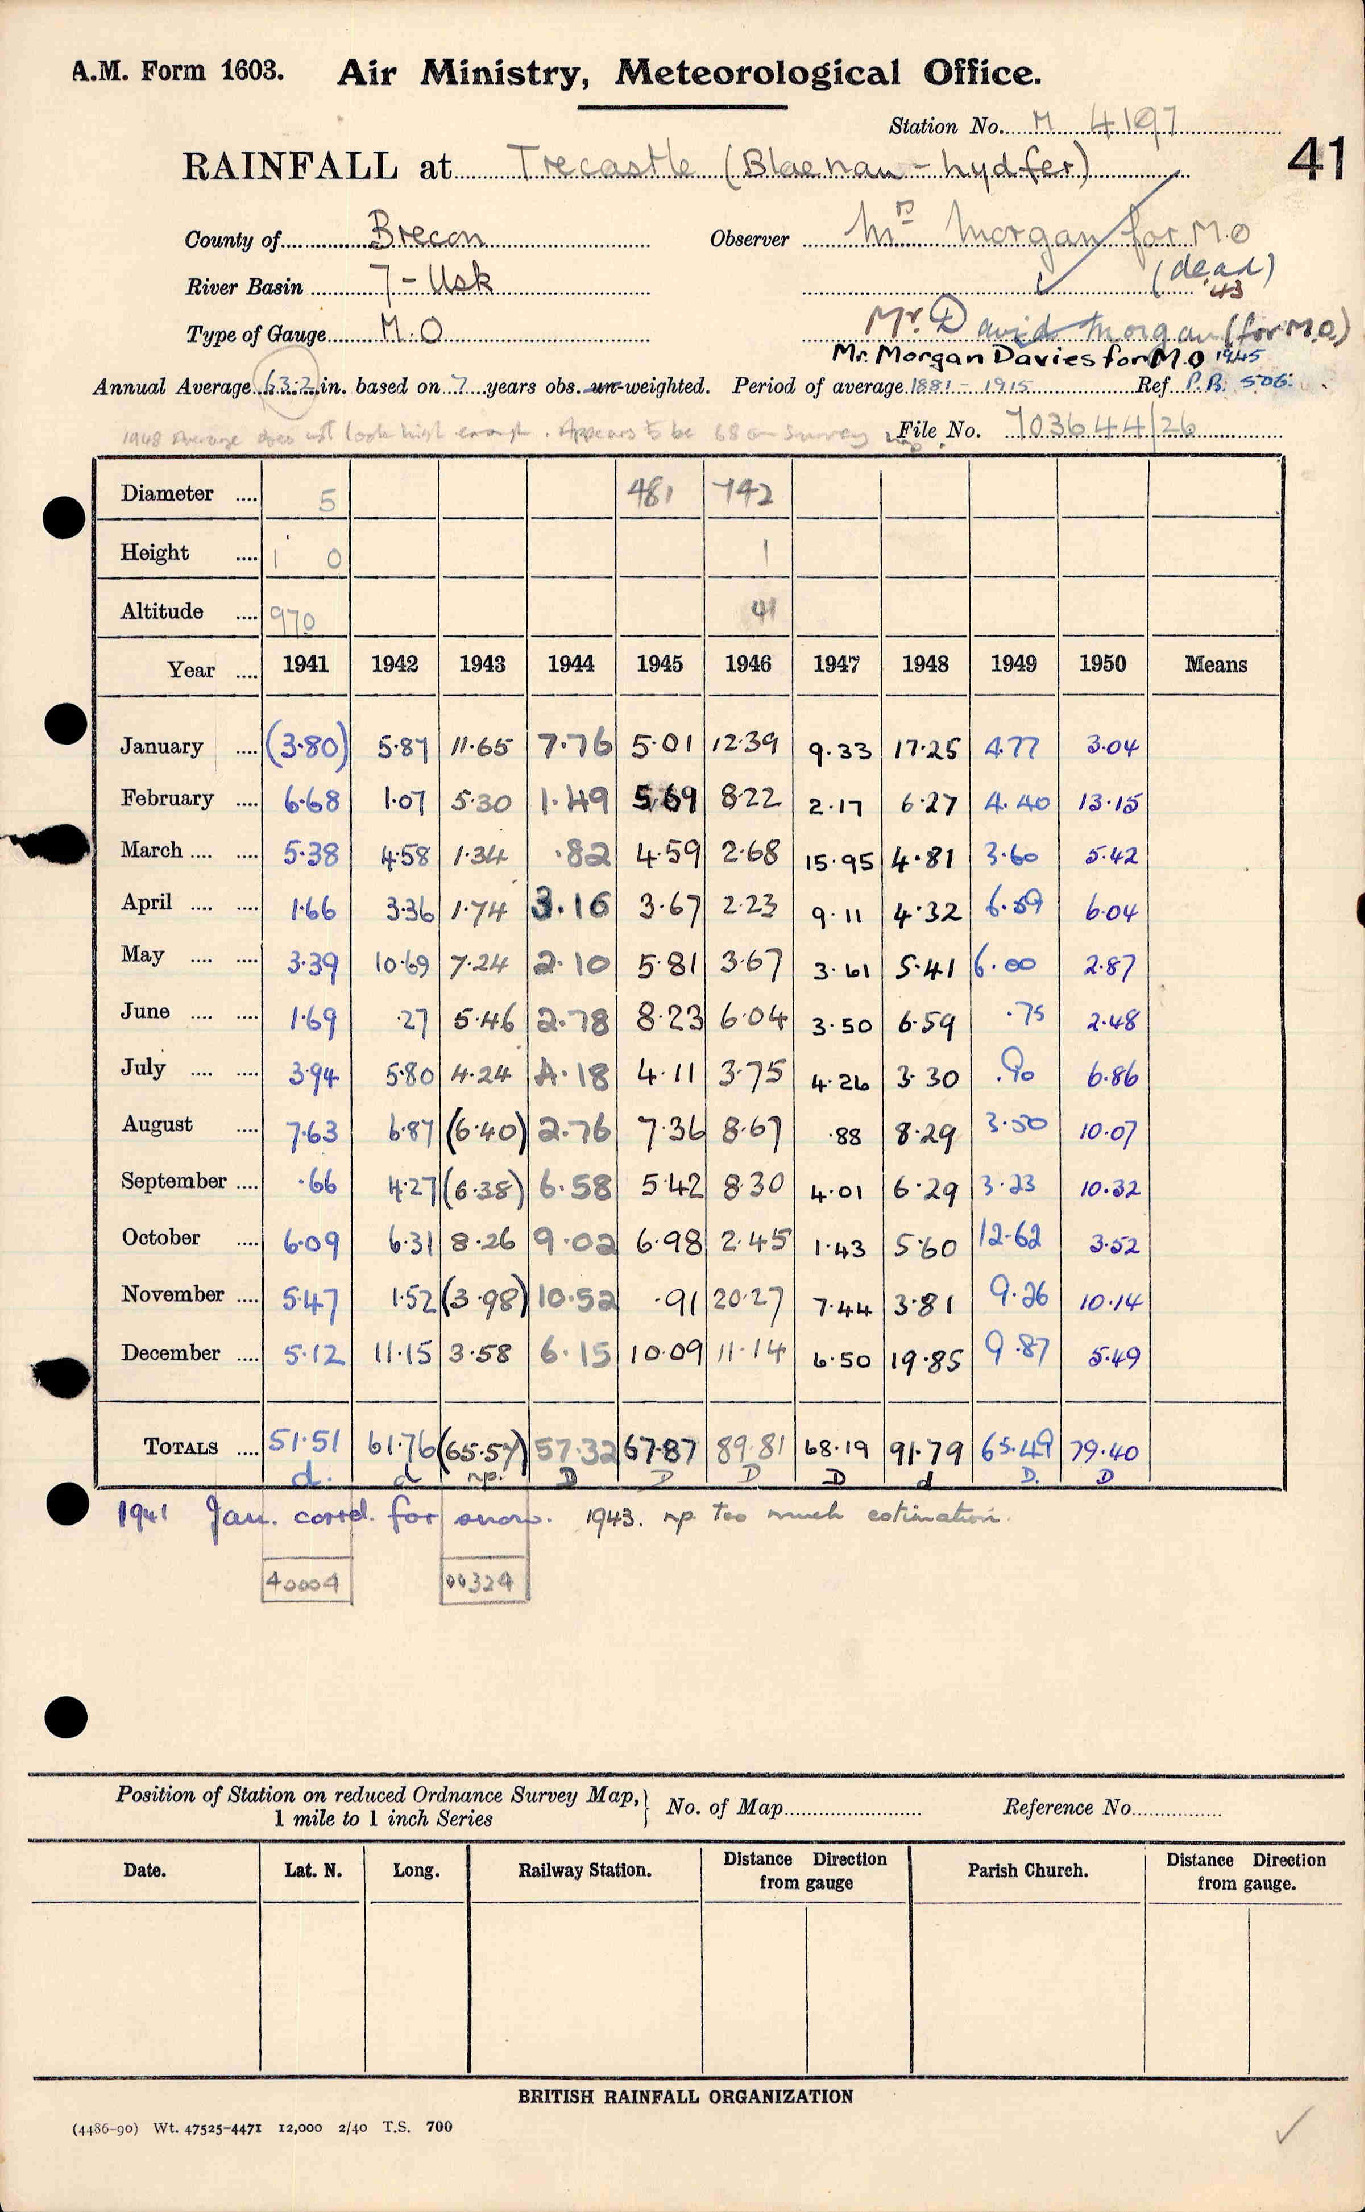 A.M. Form 1603. Air Ministry, Meteorological Office.
Station No. M 4197
RAINFALL at Trecastle (Blaenau-hydfer) 41
County of Brecon Observer Mr Morgan for M.O
(dead)
River Basin 7-Usk '43
Type of Gauge M.O Mr. David Morgan (for M.O.)
Mr. Morgan Davies for M.O 1945
Annual Average 63.2 in. based on 7 years obs. un-weighted. Period of average 1881-1915 Ref P.B. 506.
1948 Average does not look high enough. Appears to be 68 on Survey map. File No. 703644/26
Diameter .... 5 481 742
Height .... 1 0 1
Altitude .... 970 41
Year .... 1941 1942 1943 1944 1945 1946 1947 1948 1949 1950 Means
January .... (3.80) 5.87 11.65 7.76 5.01 12.39 9.33 17.25 4.77 3.04
February .... 6.68 1.07 5.30 1.49 5.69 8.22 2.17 6.27 4.40 13.15
March .... .... 5.38 4.58 1.34 .82 4.59 2.68 15.95 4.81 3.60 5.42
April .... .... 1.66 3.36 1.74 3.16 3.67 2.23 9.11 4.32 6.59 6.04
May .... .... 3.39 10.69 7.24 2.10 5.81 3.67 3.61 5.41 6.00 2.87
June .... .... 1.69 .27 5.46 2.78 8.23 6.04 3.50 6.59 .75 2.48
July .... .... 3.94 5.80 4.24 4.18 4.11 3.75 4.26 3.30 .90 6.86
August .... 7.63 6.87 (6.40) 2.76 7.36 8.67 .88 8.29 3.50 10.07
September .... .66 4.27 (6.38) 6.58 5.42 8.30 4.01 6.29 3.23 10.32
October .... 6.09 6.31 8.26 9.02 6.98 2.45 1.43 5.60 12.62 3.52
November .... 5.47 1.52 (3.98) 10.52 .91 20.27 7.44 3.81 9.26 10.14
December .... 5.12 11.15 3.58 6.15 10.09 11.14 6.50 19.85 9.87 5.49
TOTALS .... 51.51 61.76 (65.57) 57.32 67.87 89.81 68.19 91.79 65.49 79.40
d. d np. D D D D d D. D
1941 Jan. corrd. for snow. 1943. np too much estimation.
40004 00324
Position of Station on reduced Ordnance Survey Map, } No. of Map Reference No.
1 mile to 1 inch Series
Date. Lat. N. Long. Railway Station. Distance from gauge Direction Parish Church. Distance Direction from gauge.
BRITISH RAINFALL ORGANIZATION
(4486-90) Wt. 47525-4471 12,000 2/40 T.S. 700